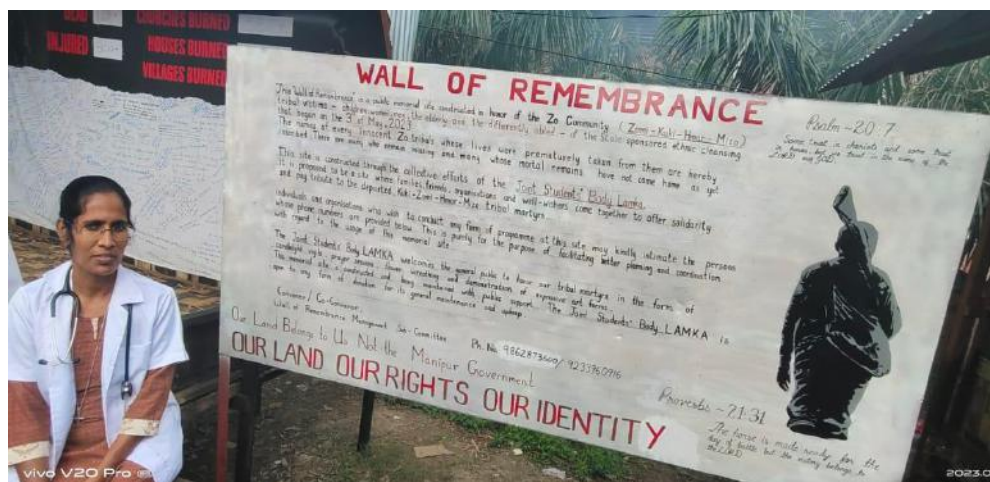 DEAD
CHURCHES BURNED
INJURED
HOUSES BURNED
VILLAGES BURNED
WALL OF REMEMBRANCE
This "Wall of Remembrance" is a public memorial site constructed in honor of the Zo Community (Zomi-Kuki-Hmar-Mizo)
tribal victims - children, women, the elderly and the differently abled - of the State sponsored ethnic cleansing
that began on the 3rd of May, 2023.
The names of every innocent Zo tribals whose lives were prematurely taken from them are hereby
inscribed. There are many who remain missing and many whose mortal remains have not come home as yet
This site is constructed through the collective efforts of the Joint Students' Body Lamka.
It is proposed to be a site where families, friends, organisations and well-wishers come together to offer solidarity
and pay tribute to the departed, Kuki-Zomi-Hmar-Mizo tribal martyrs.
Individuals and organisations who wish to conduct any form of programme at this site may kindly intimate the persons
whose phone numbers are provided below. This is purely for the purpose of facilitating better planning and coordination
with regard to the usage of this memorial site.
The Joint Students' Body LAMKA welcomes the general public to honor our tribal martyrs in the form of
candlelight vigils, prayer sessions, flower wreathing and demonstration of expressive art forms.
This memorial site is constructed and being maintained with public support. The Joint Students' Body LAMKA is
open to any form of donation for its general maintenance and upkeep.
Convenor / Co-Convenor
Wall of Remembrance Management Sub-Committee
Ph. No. 9862873600 / 9233760916
Our Land Belongs to Us Not the Manipur Government
OUR LAND OUR RIGHTS OUR IDENTITY
Psalm - 20:7
Some trust in chariots and some trust
in horses, but we trust in the name of the
LORD our GOD.
Proverbs - 21:31
The horse is made ready for the
day of battle but the victory belongs to
the LORD
vivo V20 Pro
2023.0